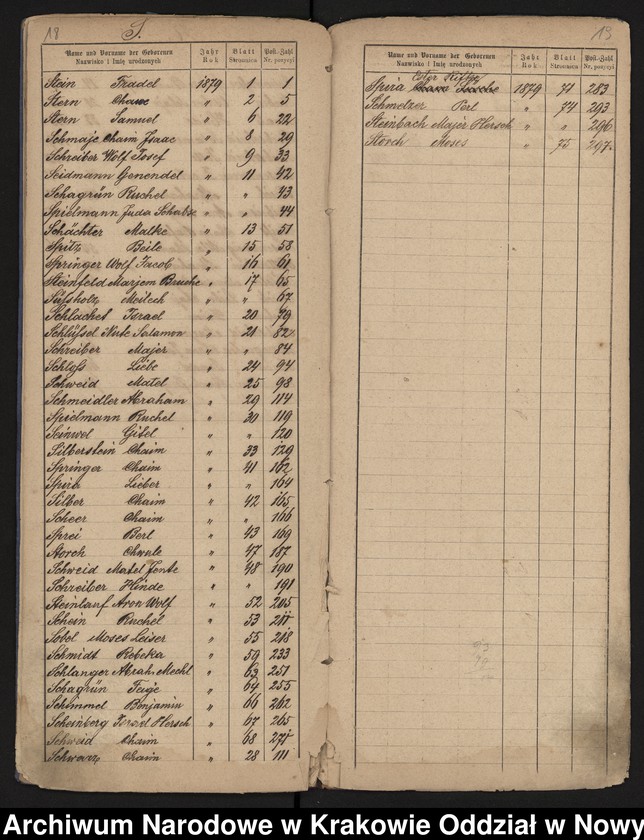 18 S.
Name und Vorname der Geborenen Jahr Blatt Post-Zahl
Nazwisko i Imię urodzonych Rok Stronnica Nr. pozycyi
Stein Fradel 1879 1 1
Stern Chane " 2 5
Stern Samuel " 6 22
Schmaje Chaim Isaac " 8 29
Schreiber Wolf Josef " 9 33
Seidmann Genendel " 11 42
Schagrün Ruchel " " 43
Spielmann Juda Schabse " " 44
Schächter Malke " 13 51
Spitz Beile " 15 58
Springer Wolf Jacob " 16 61
Steinfeld Marjem Bruche " 17 65
Süfsholz Meilech " " 67
Schlachet Israel " 20 79
Schlüfsel Nute Salamon " 21 82
Schreiber Majer " " 84
Schlofs Liebe " 24 94
Schweid Matel " 25 98
Schmeidler Abraham " 29 114
Spielmann Ruchel " 30 119
Seinwel Gitel " " 120
Silberstein Chaim " 33 129
Springer Chaim " 41 162
Spira Lieber " " 164
Silber Chaim " 42 165
Scheer Chaim " " 166
Sprei Berl " 43 169
Storch Chwule " 47 187
Schweid Matel Jente " 48 190
Schreiber Hinde " " 191
Steinlauf Aron Wolf " 52 205
Schein Ruchel " 53 211
Sobel Moses Leiser " 55 218
Schmidt Rebeka " 59 233
Schlanger Abrah. Mechl " 63 251
Schagrün Feige " 64 255
Schimmel Benjamin " 66 262
Scheinberg Israel Hersch " 67 265
Schweid Chaim " 68 271
Schwarz Chaim " 28 111
13
Name und Vorname der Geborenen Jahr Blatt Post-Zahl
Nazwisko i Imię urodzonych Rok Stronnica Nr. pozycyi
Ester
Spira 1879 71 283
Schmelzer Perl " 74 293
Steinbach Majer Hersch " " 296
Storch Moses " 75 297
Archiwum Narodowe w Krakowie Oddział w Nowy